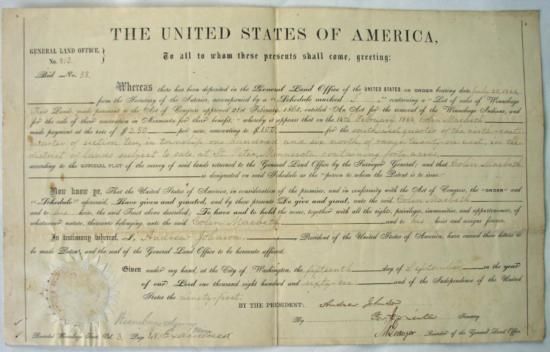 THE UNITED STATES OF AMERICA,
GENERAL LAND OFFICE,
No. 812
To all to whom these presents shall come, greeting:
Bid No. 58.
Whereas there has been deposited in the General Land Office of the UNITED STATES an ORDER bearing date
from the Secretary of the Interior, accompanied by a "Schedule marked containing a List of sales of Winnebago
Trust Lands, made pursuant to the Act of Congress approved 21st February, 1863, entitled "An Act for the removal of the Winnebago Indians, and
for the sale of their reservation in Minnesota for their benefit," whereby it appears that on the 16th February 1864 Colin Macbeth
made payment at the rate of $2.50 per acre, amounting to $100 for the south west quarter of the north east
quarter of section ten, in township one hundred and six north, of range twenty six west, in the
district of lands subject to sale at St. Peter, Minnesota, containing forty acres
according to the OFFICIAL PLAT of the survey of said lands returned to the General Land Office by the Surveyor General; and that Colin Macbeth
is designated on said Schedule as the "person to whom the Patent is to issue."
Now know ye, That the United States of America, in consideration of the premises, and in conformity with the Act of Congress, the "ORDER" and
"Schedule" aforesaid, Have given and granted, and by these presents Do give and grant, unto the said Colin Macbeth
and to his heirs, the said Tract above described: To have and to hold the same, together with all the rights, privileges, immunities, and appurtenances, of
whatsoever nature, thereunto belonging, unto the said Colin Macbeth and to his heirs and assigns forever.
In testimony whereof, I, Andrew Johnson, President of the United States of America, have caused these letters to
be made Patent and the seal of the General Land Office to be hereunto affixed.
Given under my hand, at the City of Washington, the fifteenth day of September in the year
of our Lord one thousand eight hundred and sixty six and of the Independence of the United
States the ninety-first
BY THE PRESIDENT: Andrew Johnson
By Secretary
Recorded Vol. 3 Page Recorder of the General Land Office.